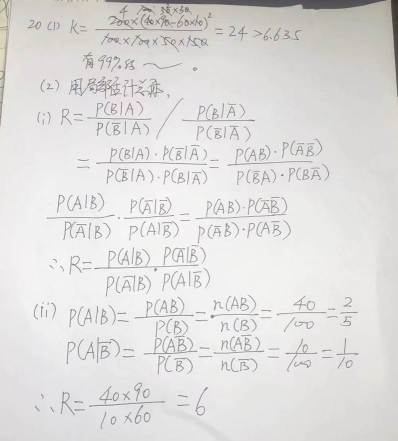 20 (1) K = 200×(40×90-60×10)² / 100×100×50×150 = 24 > 6.635
有99%
(2) 用局部估计总体,
(i) R = P(B|A) / P(B̄|A) / P(B|Ā) / P(B̄|Ā)
= P(B|A)·P(B̄|Ā) / P(B̄|A)·P(B|Ā) = P(AB)·P(ĀB̄) / P(B̄A)·P(BĀ)
P(A|B) / P(Ā|B) · P(Ā|B̄) / P(A|B̄) = P(AB)·P(ĀB̄) / P(ĀB)·P(AB̄)
∴R = P(A|B) / P(Ā|B) · P(Ā|B̄) / P(A|B̄)
(ii) P(A|B) = P(AB) / P(B) = n(AB) / n(B) = 40 / 100 = 2 / 5
P(A|B̄) = P(AB̄) / P(B̄) = n(AB̄) / n(B̄) = 10 / 100 = 1 / 10
∴R = 40×90 / 10×60 = 6